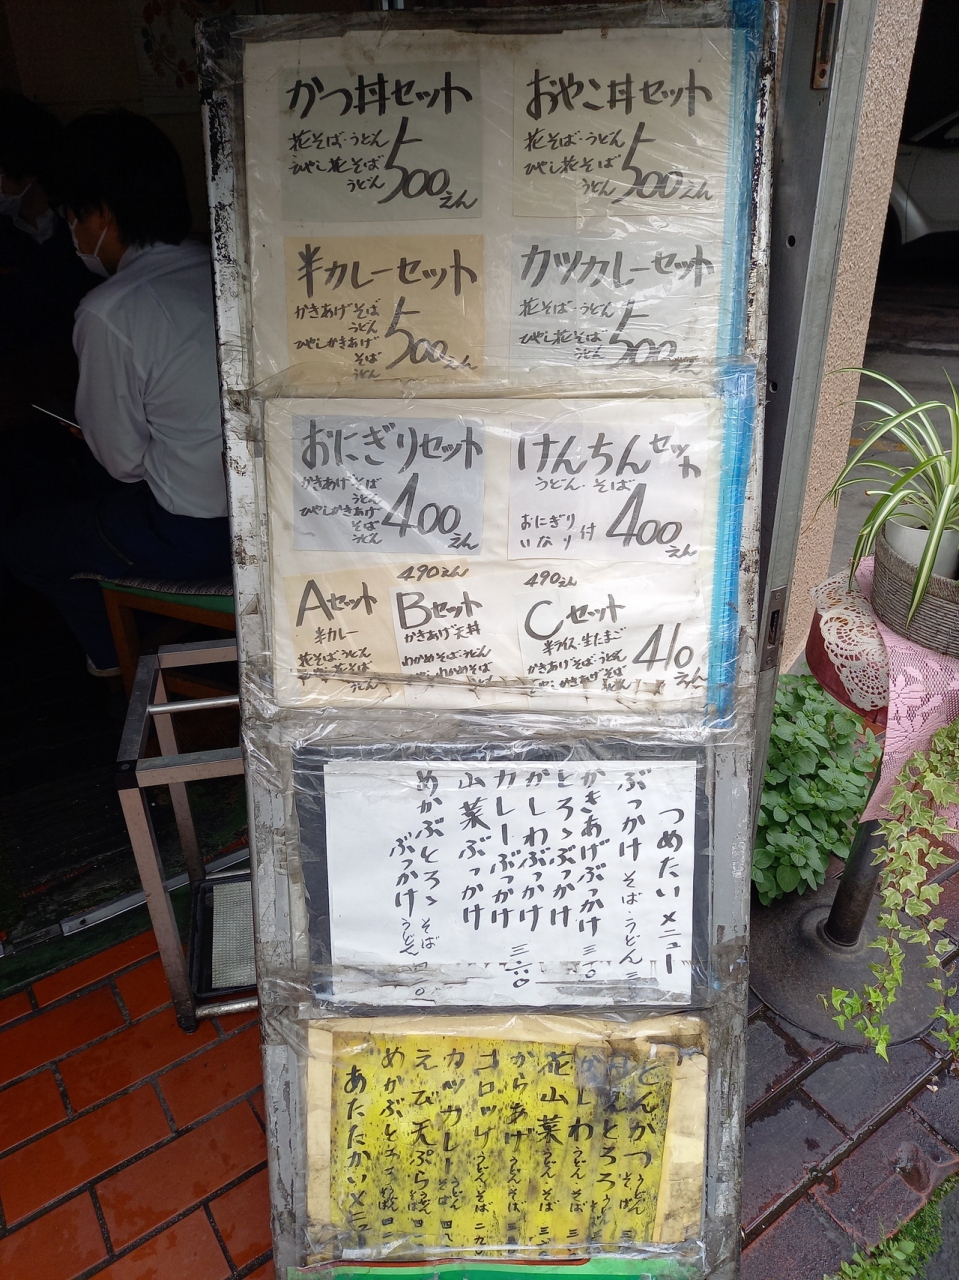 かつ丼セット
花そば・うどん
ひやし花そば
うどん
500えん
おやこ丼セット
花そば・うどん
ひやし花そば
うどん
500えん
半カレーセット
かきあげそば
うどん
ひやしかきあげ
そば
うどん
500えん
カツカレーセット
花そば・うどん
ひやし花そば
うどん
500えん
おにぎりセット
かきあげそば
うどん
ひやしかきあげ
そば
うどん
400えん
けんちんセット
うどん・そば
おにぎり
いなり付
400えん
Aセット
半カレー
花そば・うどん
うどん
490えん
Bセット
かきあげ天丼
わかめそば・うどん
490えん
Cセット
半ライス・生たまご
かきあげそば・うどん
410えん
つめたいメニュー
ぶっかけ そば・うどん
かきあげぶっかけ 三一〇
とろゝぶっかけ
かしわぶっかけ
カレーぶっかけ 三六〇
山菜ぶっかけ
めかぶとろゝ そば
ぶっかけ うどん
とんかつ うどん そば
かしわ うどん・そば
花山菜 うどん・そば
からあげ うどん・そば
コロッケ うどん・そば
カツカレー うどん そば
えび天ぷら
めかぶとろろ
あたたかいメニ